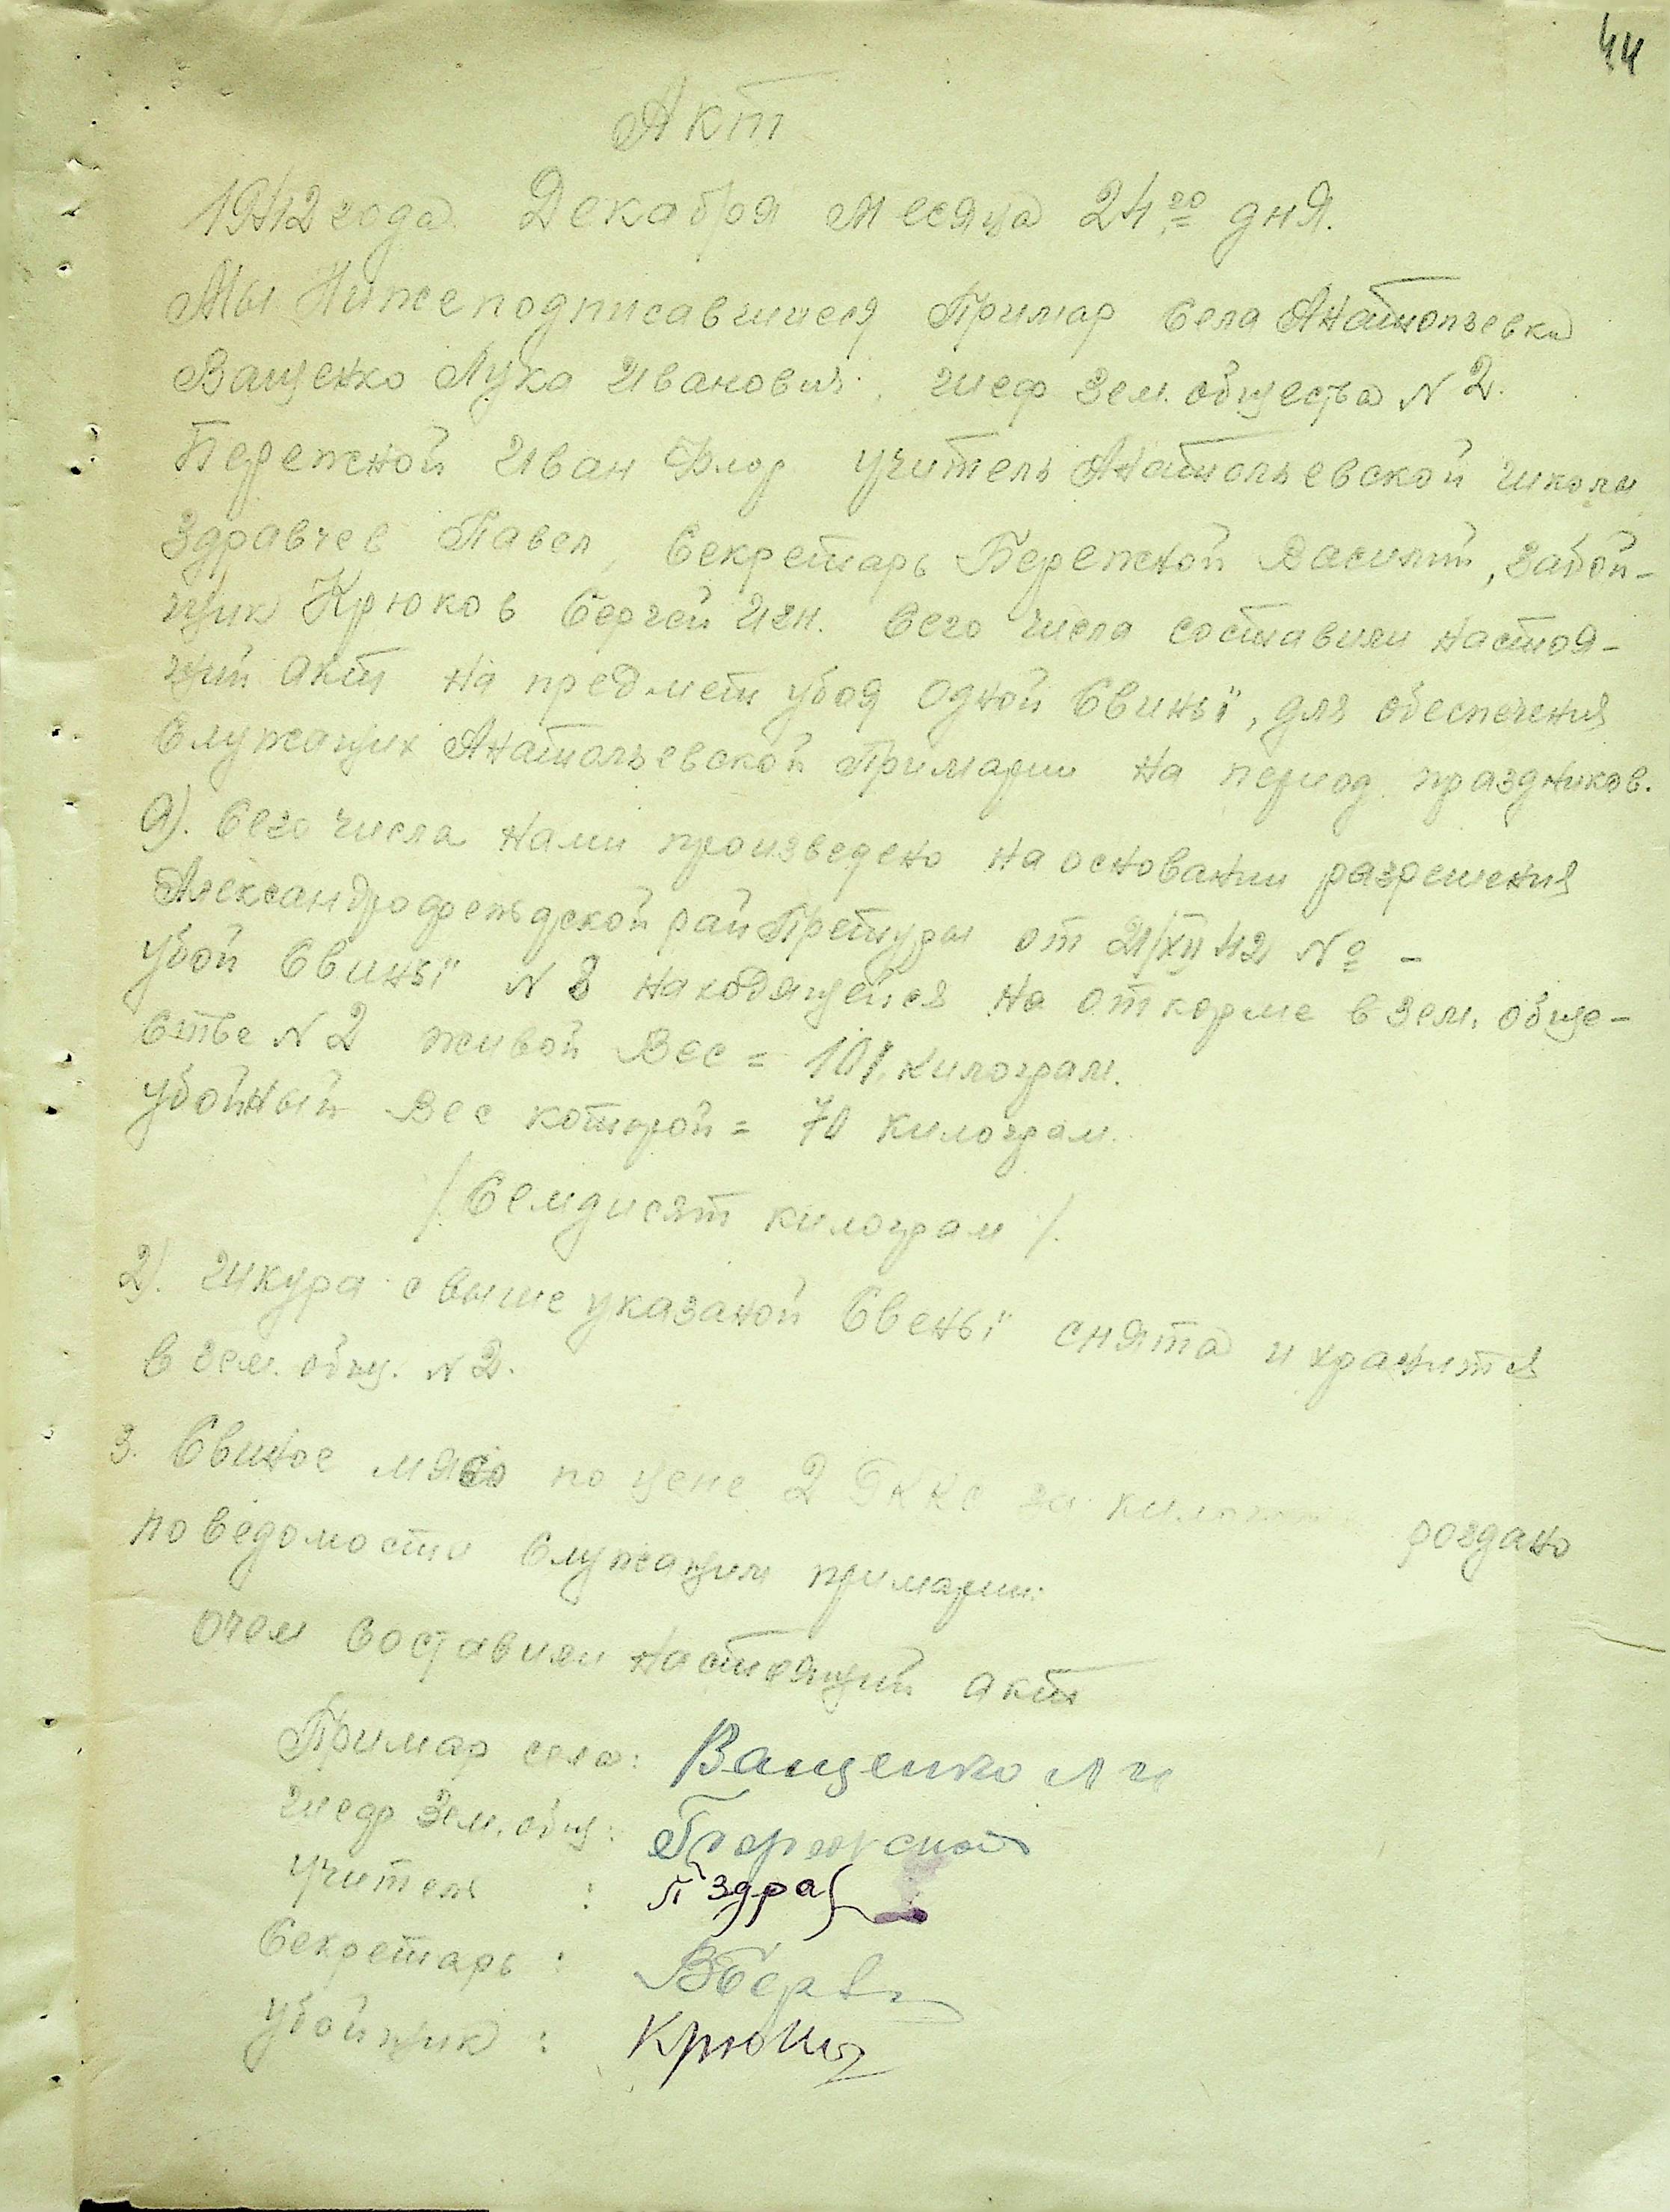 44
Акт
1942 года Декабря месяца 24го дня.
Мы Нижеподписавшиеся Примар Села Анатольевка
Ващенко Лука Иванович, шеф Зем. общества N 2.
Бережной Иван Флор учитель Анатольевской школы
Здравчев Павел, Секретарь Бережной Василий, забой-
щик Крюков Сергей Игн. Сего числа составили настоя-
щий акт на предмет убоя одной Свиньї, для обеспечения
Служащих Анатольевской Примарии на период праздников.
Сего числа нами произведено на основании разрешения
Александрофельдской рай Претуры от 21/XII 42 № -
убой Свиньї N 8 находящейся на откорме в зем. обще-
стве N 2 живой Вес = 101 килограм.
убойный Вес которой = 70 килограм.
/Семдисят килограм/.
2). шкура с выше указаной Свеньї снята и хранится
в зем. общ. N 2.
3. Свиное мясо по цене 2 за роздано
по ведомости Служащим примарии:
очем составили настоящий акт
Примар села: Ващенко Л И
шеф Зем. общ: Бережной
Учитель : П Здрав
Секретарь : ВБер
Убойщик :